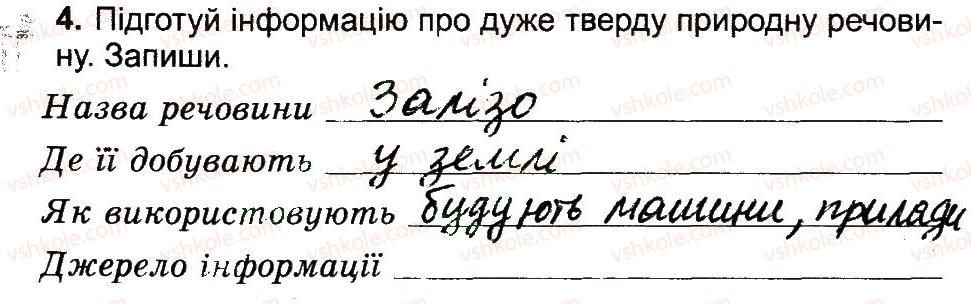 4. Підготуй інформацію про дуже тверду природну речови-
ну. Запиши.
Назва речовини Залізо
Де її добувають у землі
Як використовують будують машини, прилади
Джерело інформації